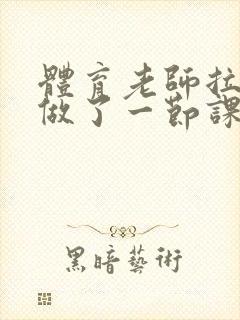 體育老師拉
做了一節課
黑暗藝術